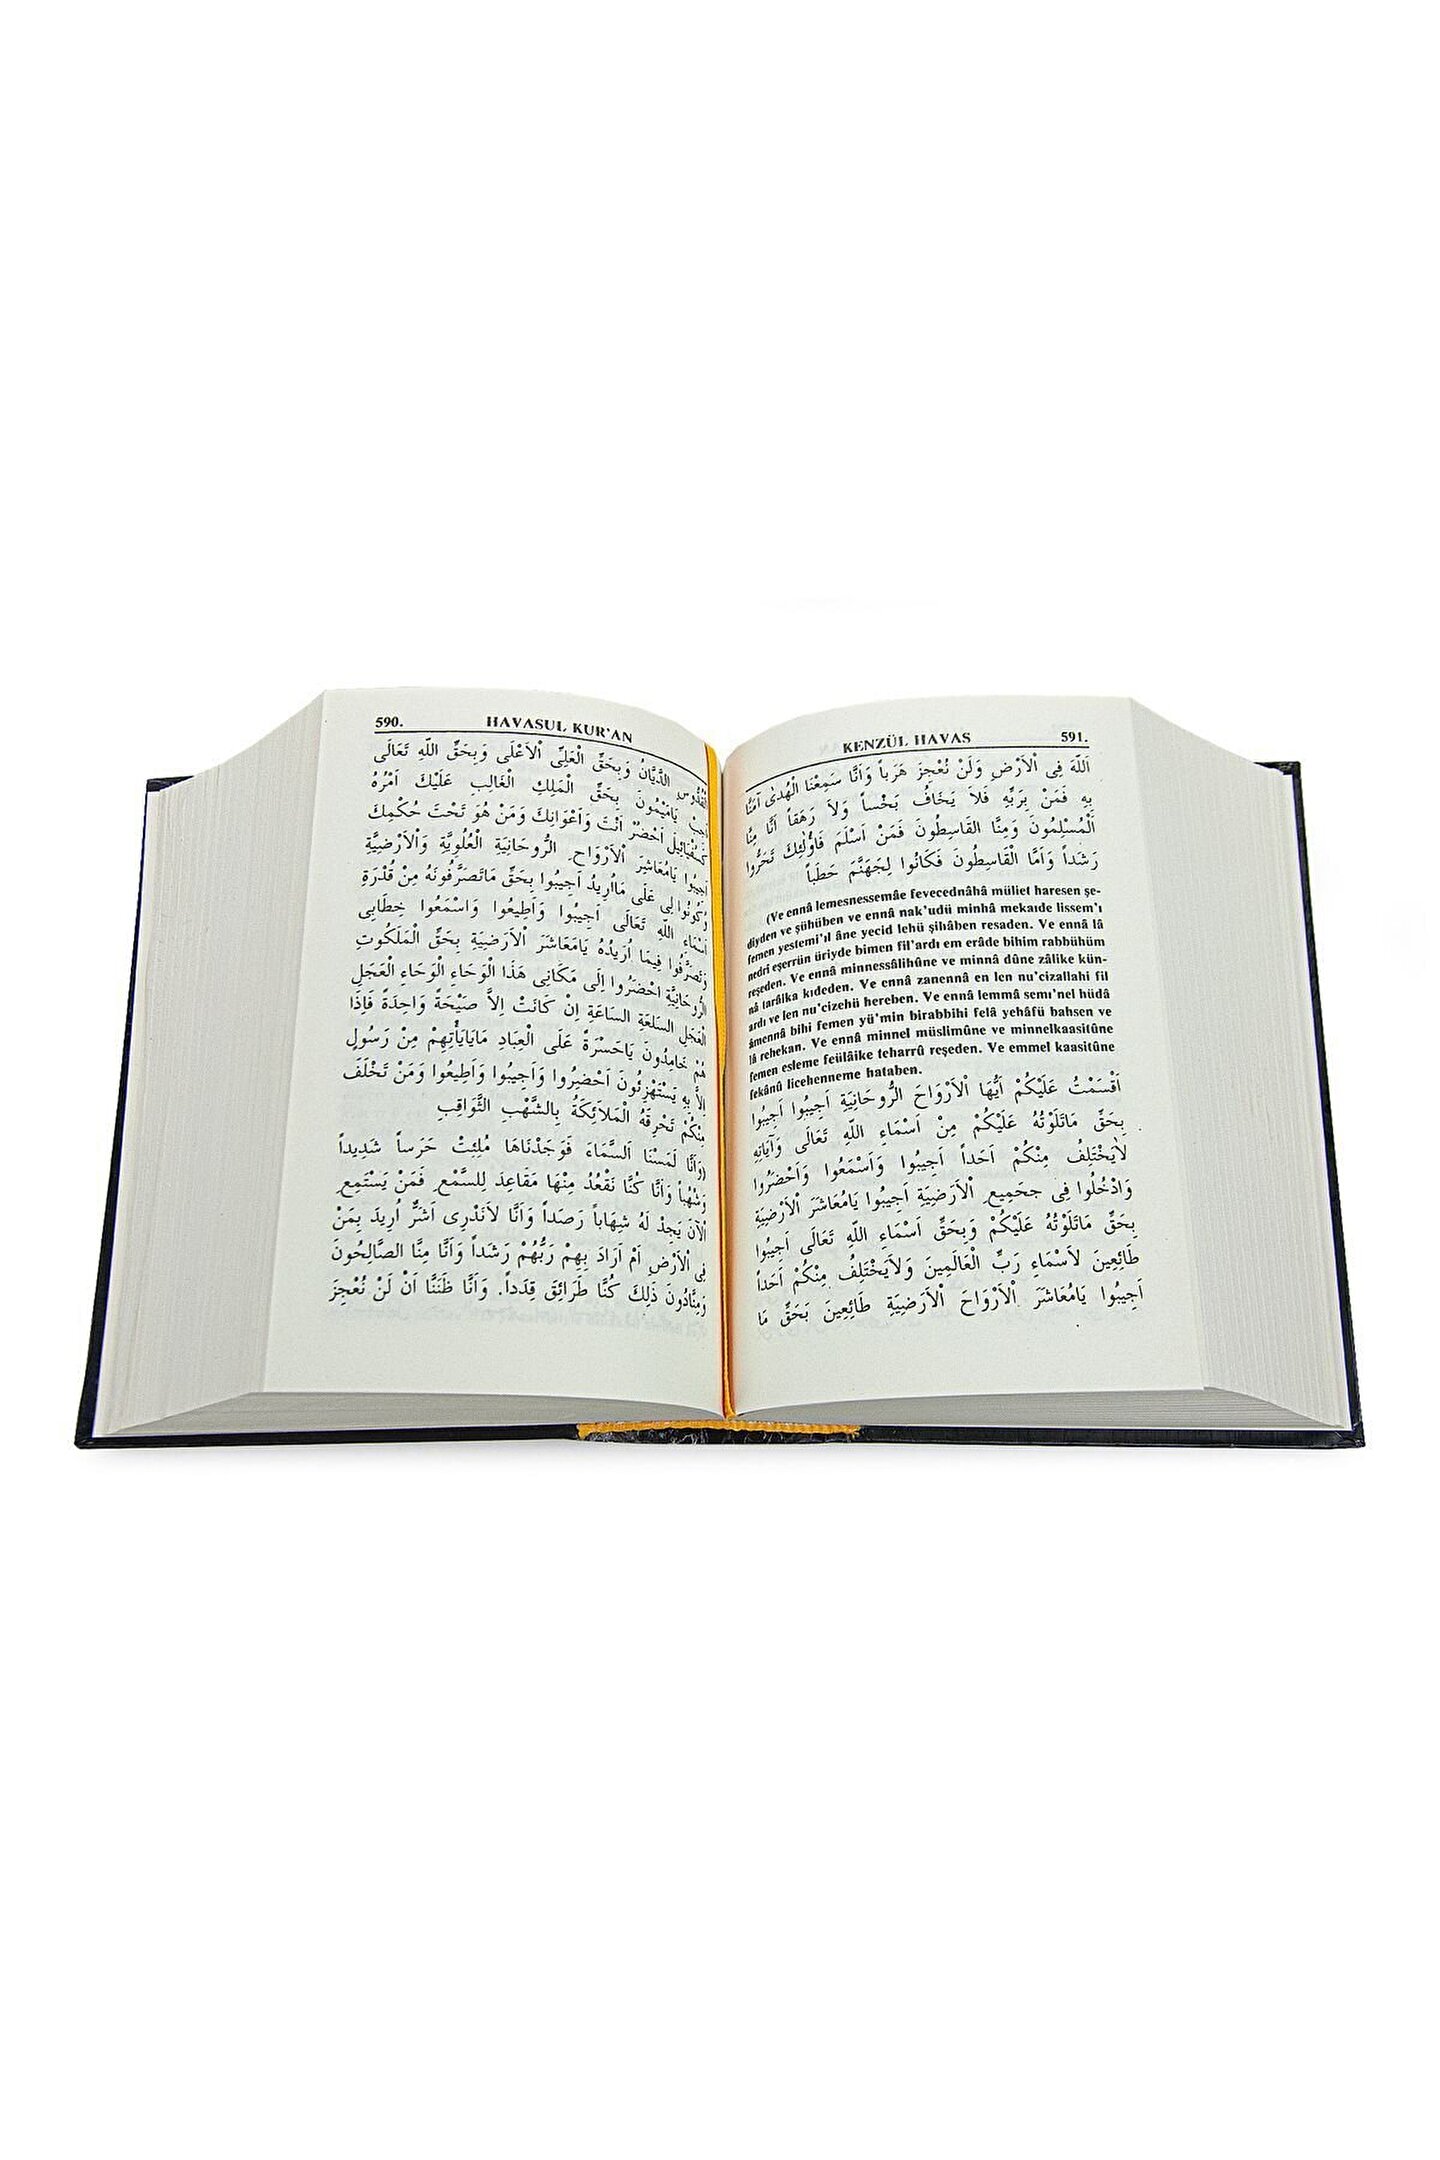 590. HAVASUL KUR'AN
الْقُدُّوسِ الدَّيَّانُ وَبِحَقِّ الْعَلِّى اْلاَعْلَى وَبِحَقِّ اللّهِ تَعَالَى
اَجِبْ يَامَيْمُونَ بِحَقِّ الْمَلِكِ الْغَالِبِ عَلَيْكَ اَمْرُهُ
اَحْضُرْ اَنْتَ وَاَعْوَانِكَ وَمَنْ هُوَ تَحْتَ حُكْمِكَ
اَجِيبُوا يَامُعَاشِرَ اْلاَرْوَاحِ الرُّوحَانِيَةِ الْعُلْوِيَّةِ وَاْلاَرْضِيَّةِ
وَكُونُوا لِى عَلَى مَااُرِيدُ اَجِيبُوا بِحَقِّ مَاتَصَرَّفُونَهُ مِنْ قُدْرَةِ
اَسْمَاءِ اللّهِ تَعَالَى اَجِيبُوا وَاَطِيعُوا وَاسْمَعُوا خِطَابِى
وَتَصَرَّفُوا فِيمَا اُرِيدُهُ يَامَعَاشَرَ اْلاَرْضِيَةِ بِحَقِّ الْمَلَكُوتِ
الرُّوحَانِيَّةِ اِحْضَرُوا اِلَى مَكَانِى هَذَا الْوَحَاءِ الْوَحَاءِ الْعَجَلِ
الْعَجَلِ السَلعَةِ السَاعَةِ اِنْ كَانَتْ اِلاَّ صَيْحَةً وَاحِدَةً فَاِذَا
هُمْ خَامِدُونَ يَاحَسْرَةً عَلَى الْعِبَادِ مَايَايَأْتِهِمْ مِنْ رَسُولٍ
اِلاَّ بِهِ يَسْتَهْزِئُونَ اَحْضِرُوا وَاَجِيبُوا وَاَطِيعُوا وَمَنْ تَخْلَفَ
مِنْكُمْ تَحْرِقَهُ الْمَلاَئِكَةُ بِالشَّهْبِ الثَّوَاقِبِ
(وَاَنَّا لَمَسْنَا اَلسَّمَاءَ فَوَجَدْنَاهَا مُلِئِتْ حَرَساً شَدِيداً
وَشُهُباً وَاَنَّا كُنَّا نَقْعُدُ مِنْهَا مَقَاعِدَ لِلسَّمْعِ فَمَنْ يَسْتَمِعِ
اْلآنَ يَجِدْ لَهُ شِهَاباً رَصَداً وَاَنَّا لاَنَدْرِى اَشَرٌّ اُرِيدَ بِمَنْ
فِى اْلاَرْضِ اَمْ اَرَادَ بِهِمْ رَبُّهُمْ رَشَداً وَاَنَّا مِنَّا الصَّالِحُونَ
وَمِنَّادُونَ ذَلِكَ كُنَّا طَرَائِقَ قِدَداً. وَاَنَّا ظَنَنَّا اَنْ لَنْ نُعْجِزَ
KENZÜL HAVAS 591.
اَللّهَ فِى اْلاَرْضِ وَلَنْ نُعْجِزَ هَرَباً وَاَنَّا سَمِعْنَا الْهُدٰى آمَنَّا
بِهِ فَمَنْ بِرَبِّهِ فَلاَ يَخَافُ بَخْساً وَلاَ رَهَقاً اَنَّا مِنَّا
اَلْمُسْلِمُونَ وَمِنَّا القَاسِطُونَ فَمَنْ اَسْلَمَ فَاُولٰئِكَ تَحَرُّوا
رَشَداً وَاَمَّا الْقَاسِطُونَ فَكَانُوا لِجَهَنَّمَ حَطَباً
(Ve ennâ lemesnessemâe fevecednâhâ müliet haresen şe-
diyden ve şühüben ve ennâ nak'udü minhâ mekaıde lissem'ı
femen yestemi'ıl âne yecid lehü şihâben resaden. Ve ennâ lâ
nedrî eşerrün üriyde bimen fil'ardı em erâde bihim rabbühüm
reşeden. Ve ennâ minnessâlihûne ve minnâ dûne zâlike kün-
nâ tarâika kıdeden. Ve ennâ zanennâ en len nu'cizallahi fil
ardı ve len nu'cizehü hereben. Ve ennâ lemmâ semı'nel hüdâ
âmennâ bihi femen yü'min birabbihi felâ yehâfü bahsen ve
lâ rehekan. Ve ennâ minnel müslimûne ve minnelkaasitûne
femen esleme feülâike teharrû reşeden. Ve emmel kaasitûne
fekânû licehenneme hataben.
اَقْسَمْتُ عَلَيْكُمْ اَيُّهَا اْلاَرْوَاحَ الرُّوحَانِيَةِ اَجِيبُوا اَجِيبُوا
بِحَقِّ مَاتَلَوْتُهُ عَلَيْكُمْ مِنْ اَسْمَاءِ اللّهِ تَعَالَى وَآيَاتِهِ
لاَيَخْتَلِفُ مِنْكُمْ اَحَداً اَجِيبُوا وَاَسْمَعُوا وَاَحْضَرُوا
وَادْخُلُوا فِى جَحَمِيعِ اْلاَرَضِيَةِ اَجِيبُوا يَامُعَاشَرَ اْلاَرْضِيَةِ
بِحَقِّ مَاتَلَوْتُهُ عَلَيْكُمْ وَبِحَقِّ اَسْمَاءِ اللّهِ تَعَالَى اَجِيبُوا
طَائِعِينَ لاَسْمَاءِ رَبِّ الْعَالَمِينَ وَلاَيَخْتَلِفُ مِنْكُمْ اَحَداً
اَجِيبُوا يَامُعَاشَرَ اْلاَرْوَاحَ اْلاَرَضِيَةِ طَائِعِينَ بَحَقِّ مَا